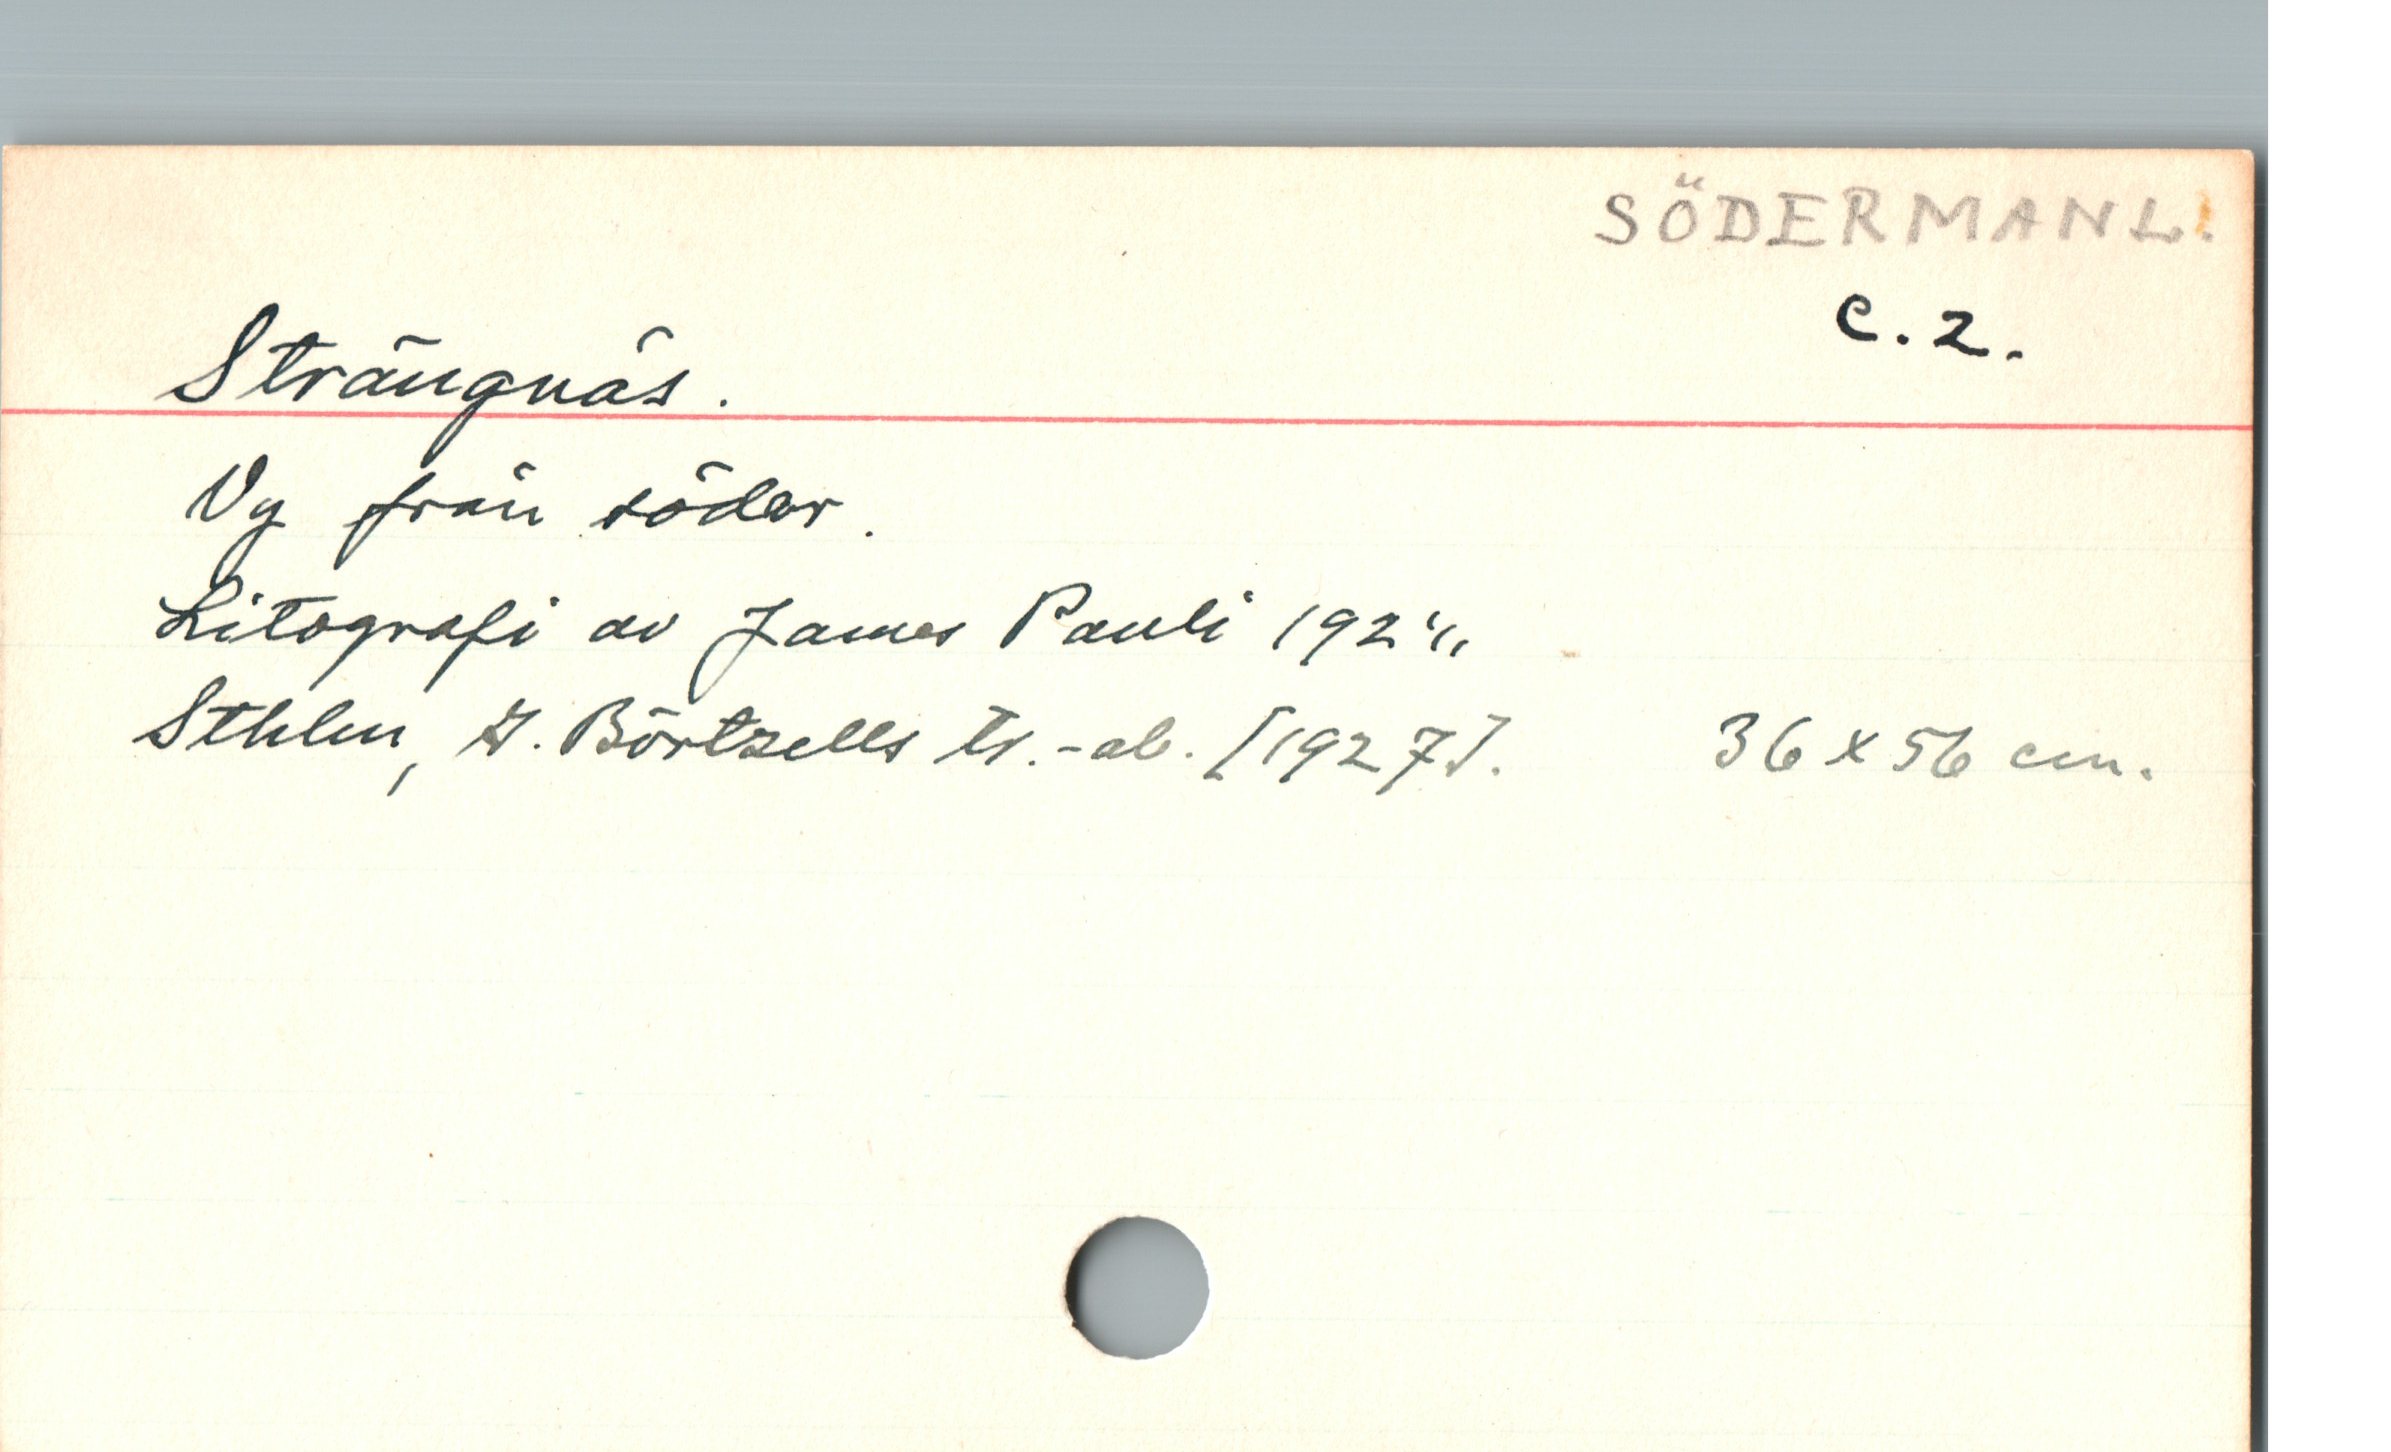 SÖDERMANL.
C. 2.
Strängnäs.
Vy från söder.
Litografi av James Pauli
Sthlm, G. Börtzells tr.-ab. [1927]. 36 x 56 cm.